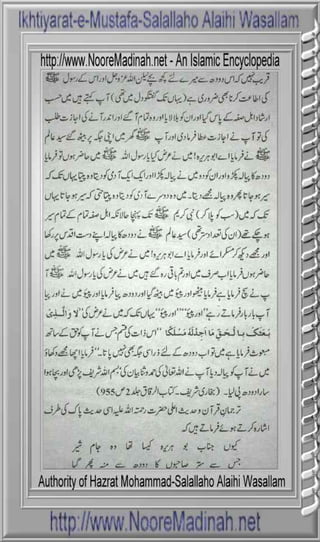 Ikhtiyarat-e-Mustafa-Salallaho Alaihi Wasallam
http://www.NooreMadinah.net - An Islamic Encyclopedia
قریب نہیں کہ اس دودھ سے میرے لئے کچھ بچے لیکن اللہ عزوجل اور اس کے رسول ﷺ
کی اطاعت کرنا بھی ضروری ہے (یہاں تک گفتگو دل میں تھی) آپ کہتے ہیں میں حسب
ارشاد اہل صفہ کے پاس گیا اور ان کو بلا لایا اور وہ تمام آ گئے اور اندر آنے کی اجازت طلب
کی تو آپ نے اجازت عطا فرما دی اور آپ ﷺ گھر میں اپنی جگہ پر بیٹھ گئے سید عالم
ﷺ نے فرمایا اے ابو ہریرہ! میں نے عرض کیا یا رسول اللہ ﷺ میں حاضر ہوں تو فرمایا
دودھ کا پیالہ پکڑو اور ان کو دو میں نے پیالہ پکڑا اور ایک ایک آدمی کو دیتا وہ پیتا یہاں تک کہ
سیر ہو جاتا پھر وہ پیالہ مجھے دیتا۔ میں وہ دوسرے آدمی کو دیتا وہ پیتا حتی کہ سیر ہو جاتا یہاں
تک کہ میں (سب کو پلا کر) نبی کریم ﷺ تک پہنچا حالانکہ اہل صفہ تمام کے تمام سیر
ہو چکے تھے (ان کی تعداد ستر تھی) سید عالم ﷺ نے دودھ کا پیالہ اپنے دست اقدس پر رکھا
اور مجھے دیکھ کر مسکرائے اور فرمایا اے ابو ہریرہ! میں نے عرض کی یا رسول اللہ ﷺ میں
حاضر ہوں فرمایا اب صرف میں اور تم باقی رہ گئے ہیں میں نے عرض کی یا رسول اللہ ﷺ آپ
نے سچ فرمایا ہے فرمایا بیٹھو اور پیو میں بیٹھ گیا اور دودھ پیا فرمایا اور پیو میں نے اور پیا
آپ بار بار فرماتے رہے "اور پیو" "اور پیو" یہاں تک کہ میں نے عرض کی "لَا وَالَّذِیْ
بَعَثَکَ بِالْحَقِّ مَا اَجِدُ لَہٗ مَسْلَکًا" اس ذات کی قسم جس نے آپ کو حق کے ساتھ
مبعوث فرمایا ہے میں تو اب دودھ کے لئے ذرا سی جگہ بھی نہیں پاتا۔" فرمایا اچھا مجھے دکھاؤ
میں نے آپ کو پیالہ دیا آپ نے اللہ تعالیٰ کی حمد و ثنا بیان کی بسم اللہ شریف پڑھی اور بچا ہوا
سارا دودھ پی لیا۔ (بخاری شریف۔ کتاب الرقاق جلد 2 ص 955)
ترجمان قرآن و حدیث اعلیٰ حضرت رحمتہ اللہ علیہ اسی حدیث پاک کی طرف
اشارہ کرتے ہوئے فرماتے ہیں کہ
کیوں جناب بو ہریرہ کیسا تھا وہ جام شیر
جس سے ستر صاحبوں کا دودھ سے منہ پھر گیا
Authority of Hazrat Mohammad-Salallaho Alaihi Wasallam
http://www.NooreMadinah.net